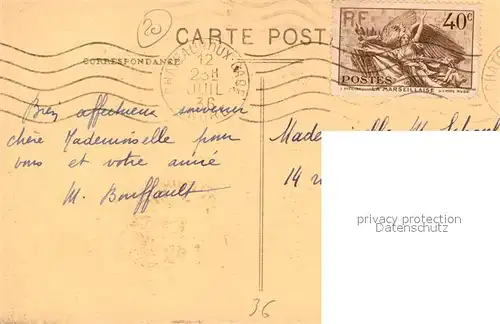 20
CARTE POST
CORRESPONDANCE
CHATEAUROUX-GARE
12
23H
JUIL
36
RF
40c
POSTES
LA MARSEILLAISE
Bien affectueux souvenir
chère Mademoiselle pour
vous et votre amie
M. Bouffault
Mademoiselle M.
14
privacy protection
Datenschutz
36